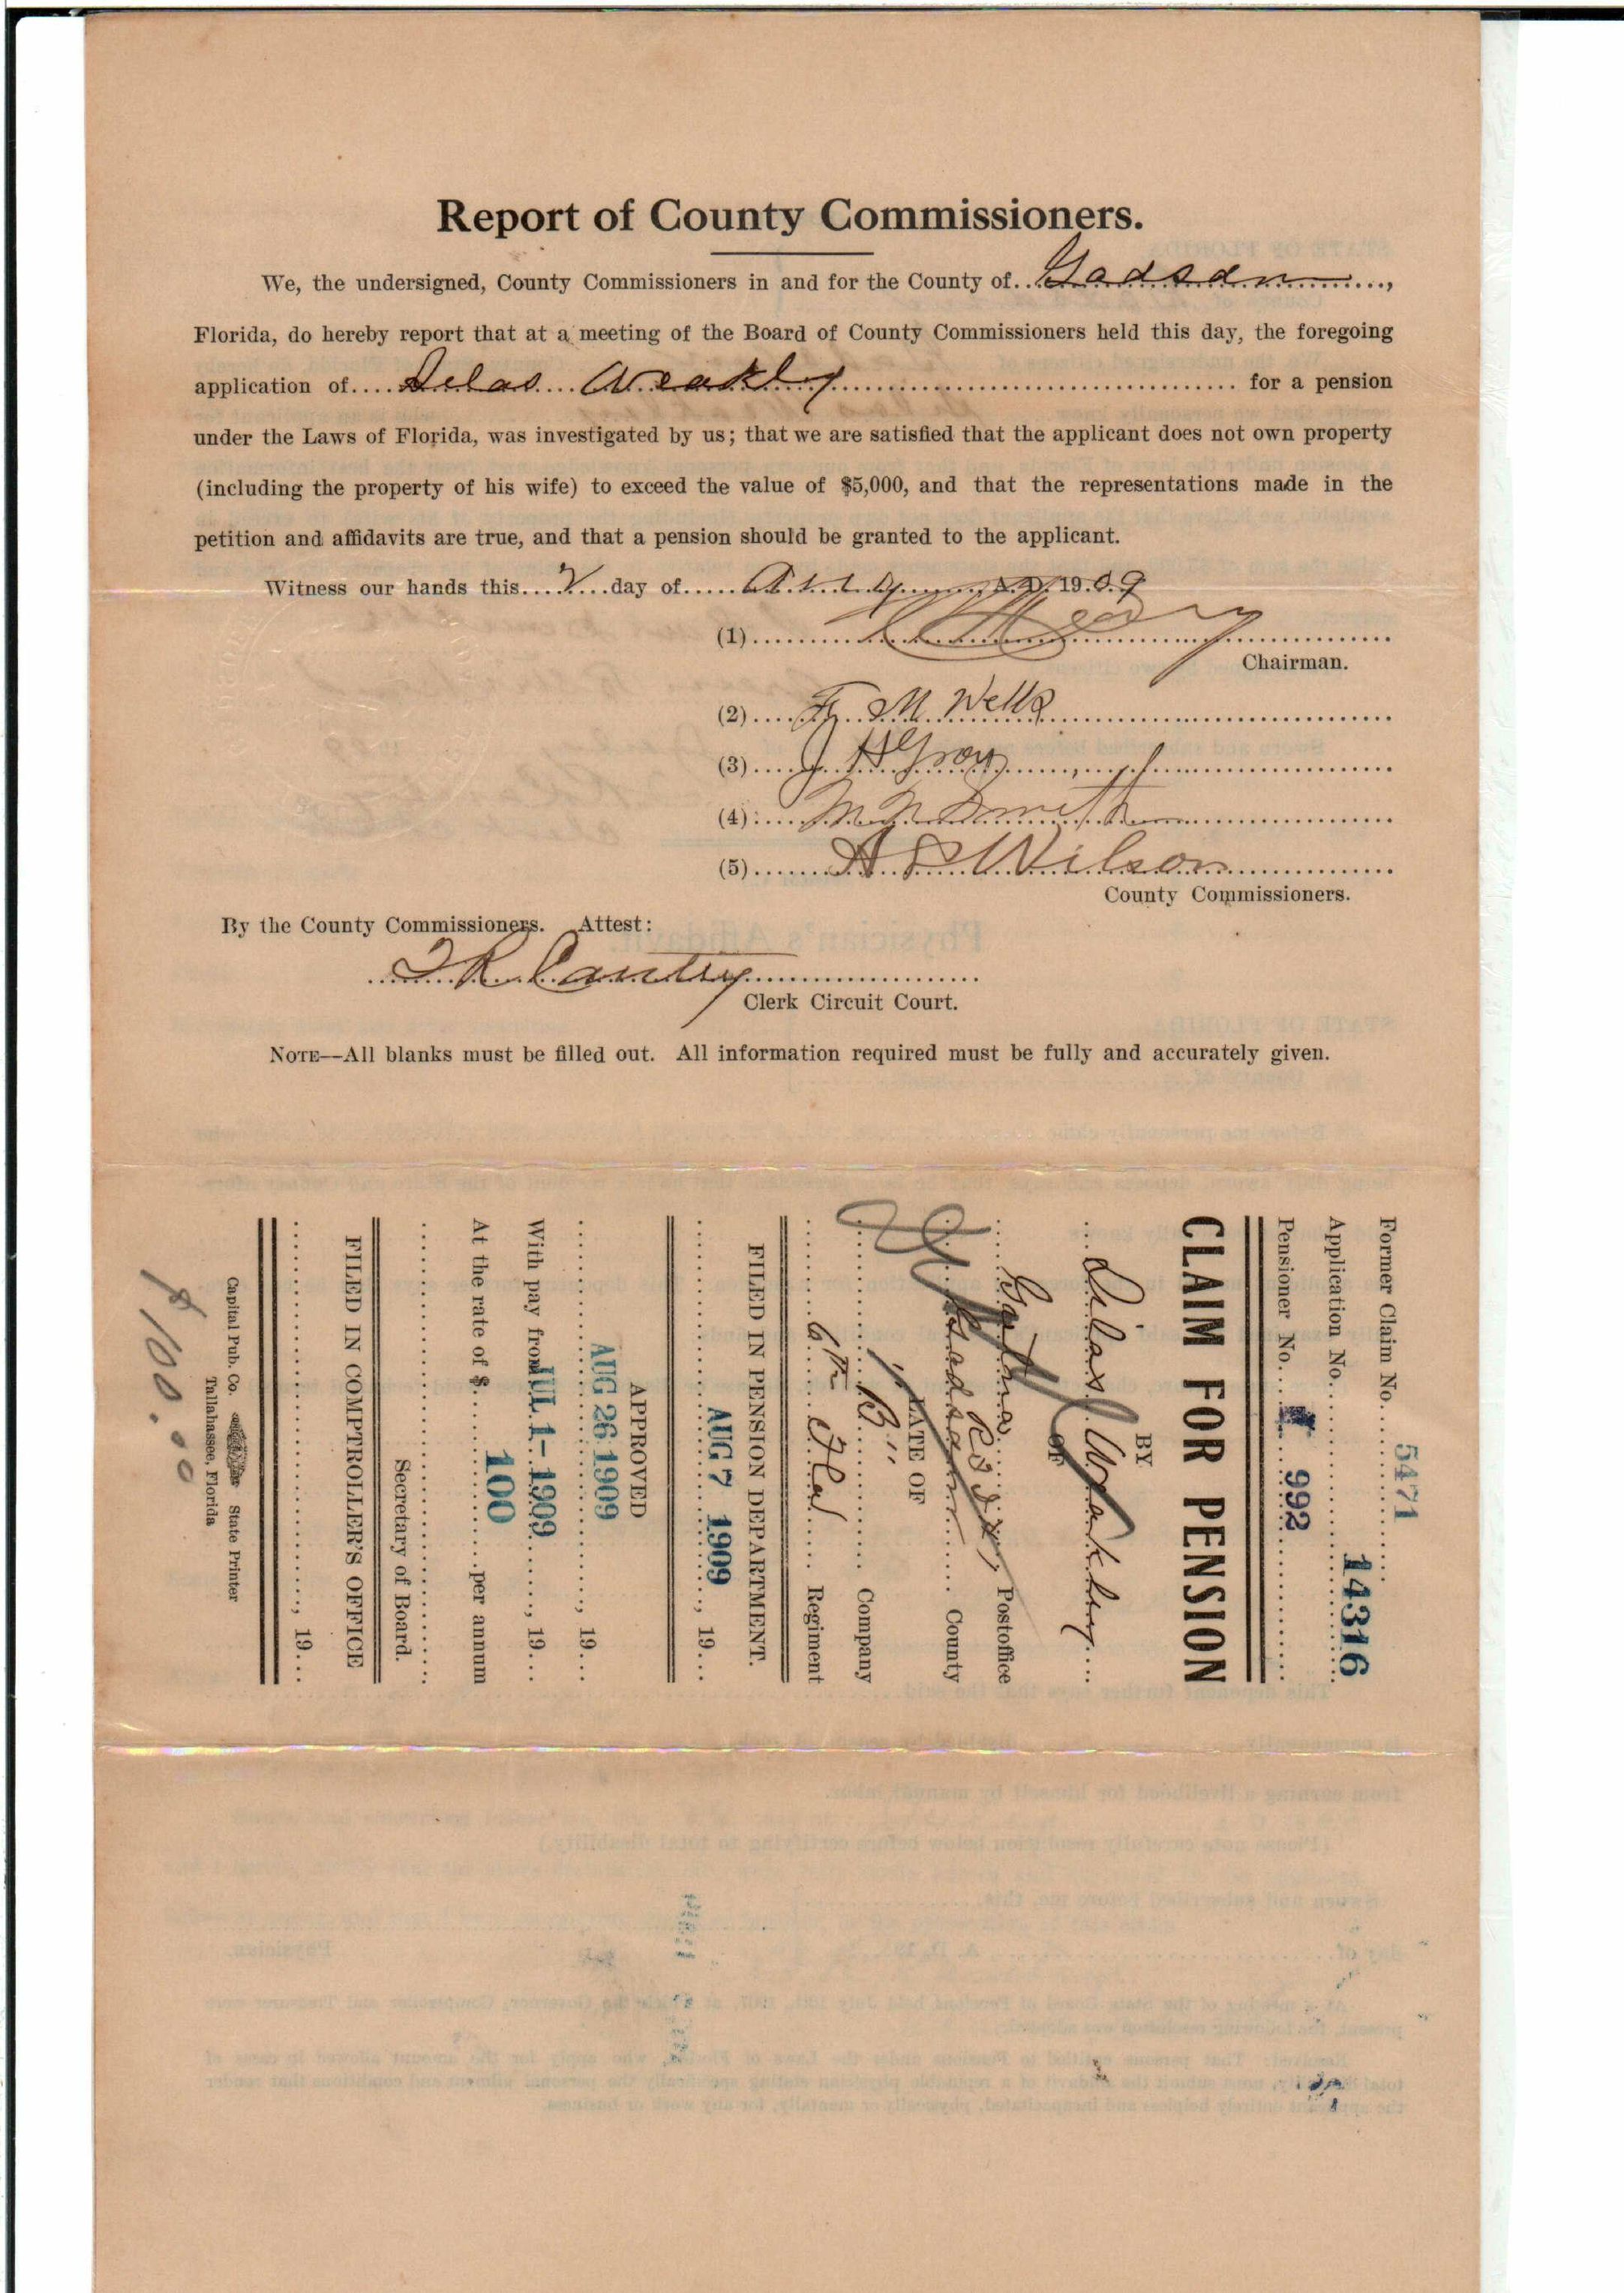 Report of County Commissioners.
We, the undersigned, County Commissioners in and for the County of Gadsden,
Florida, do hereby report that at a meeting of the Board of County Commissioners held this day, the foregoing
application of Silas Weakly for a pension
under the Laws of Florida, was investigated by us; that we are satisfied that the applicant does not own property
(including the property of his wife) to exceed the value of $5,000, and that the representations made in the
petition and affidavits are true, and that a pension should be granted to the applicant.
Witness our hands this 2 day of A. D. 1909
(1)
Chairman.
(2) F. M. Wells
(3) J H Gray
(4) M N Smith
(5) A S Wilson
County Commissioners.
By the County Commissioners. Attest:
Clerk Circuit Court.
NOTE—All blanks must be filled out. All information required must be fully and accurately given.
Former Claim No. 5471
Application No. 14316
Pensioner No. 992
CLAIM FOR PENSION
BY
Silas Weakley
OF
Postoffice
Gadsden County
LATE OF
"B" Company
6th Fla Regiment
FILED IN PENSION DEPARTMENT.
AUG 7 1909, 19
APPROVED
AUG 26 1909, 19
With pay from JUL 1 - 1909, 19
At the rate of $ 100 per annum
Secretary of Board.
FILED IN COMPTROLLER'S OFFICE
, 19
Capital Pub. Co. State Printer
Tallahassee, Florida
$100.00